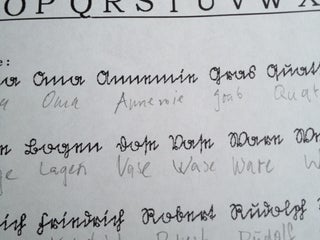 O P Q R S T U V W X
e:
a Oma Annemie Gras Quat
a Oma Annemie Quat
e Bogen Dose Vase Ware We
ge Lagen Vase Wase Ware W
ich Friedrich Robert Rudolf
Rudolf